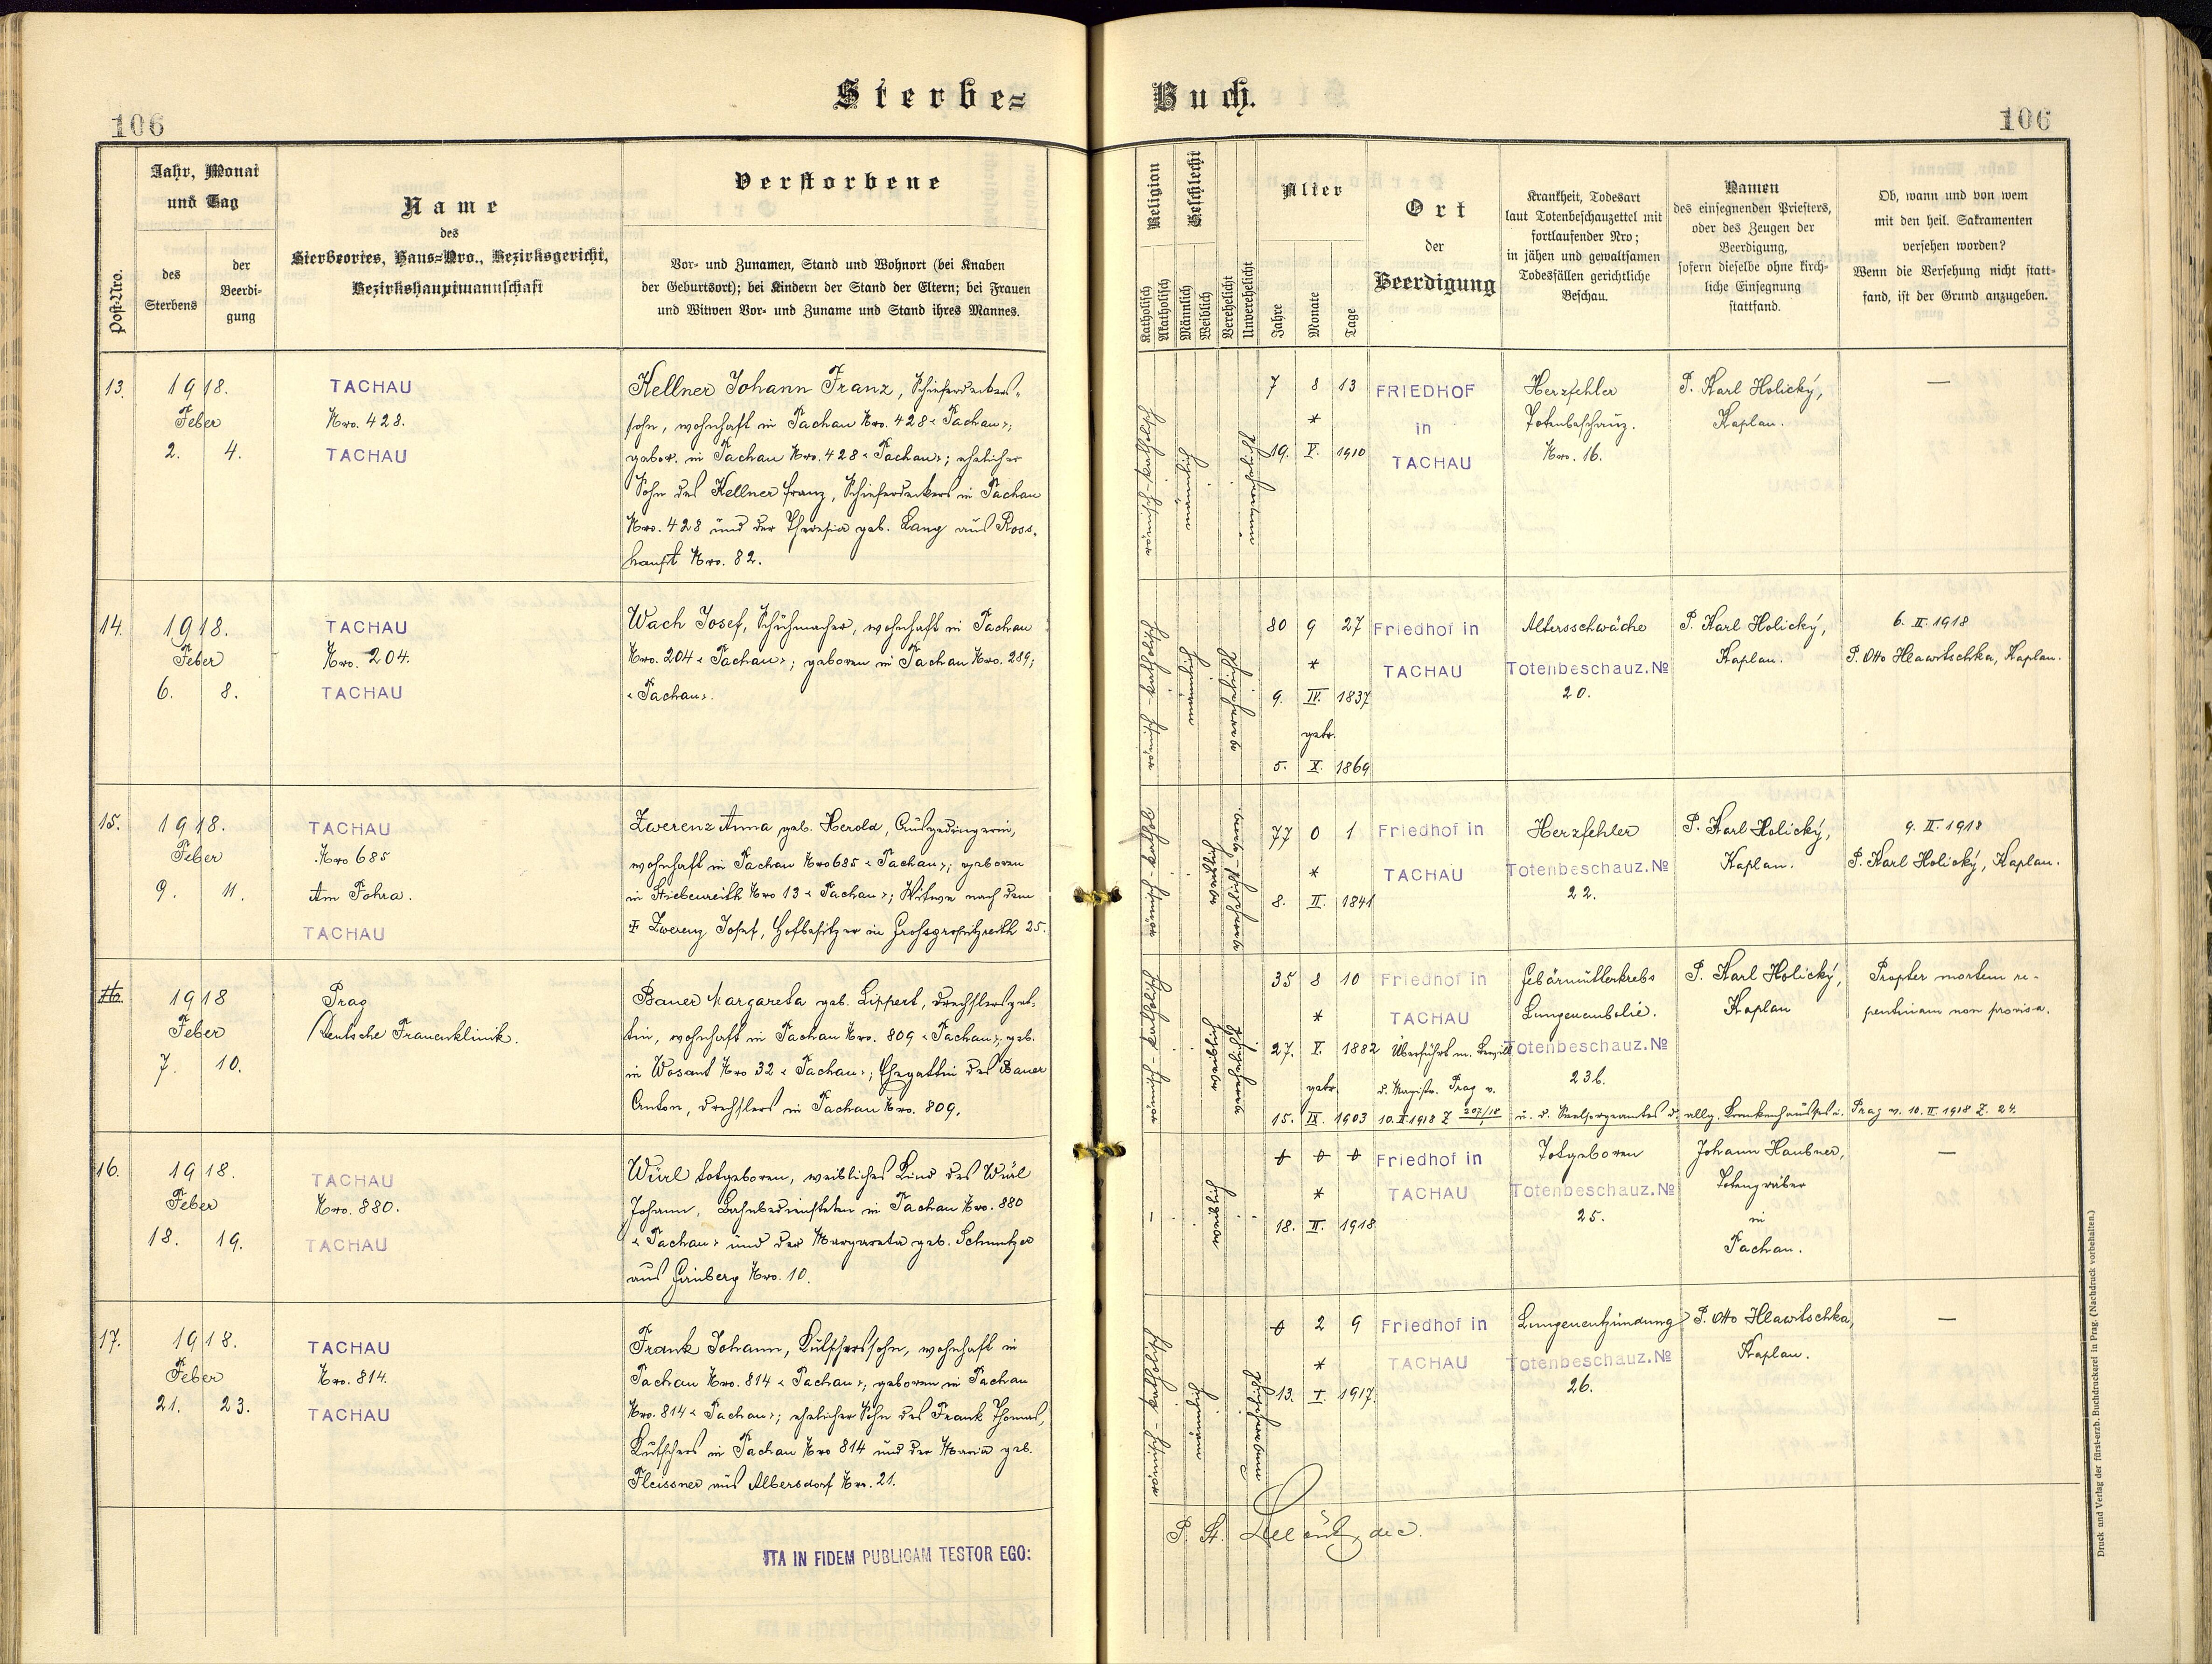 106
Sterbe=
Buch.
106
Post-Nro.
Jahr, Monat
und Tag
des
Sterbens
der
Beerdi-
gung
Name
des
Sterbeortes, Haus=Nro., Bezirksgericht,
Bezirkshauptmannschaft
Verstorbene
Vor- und Zunamen, Stand und Wohnort (bei Knaben
der Geburtsort); bei Kindern der Stand der Eltern; bei Frauen
und Witwen Vor- und Zuname und Stand ihres Mannes.
Religion
Katholisch
Akatholisch
Geschlecht
Männlich
Weiblich
Verehelicht
Unverehelicht
Alter
Jahre
Monate
Tage
Ort
der
Beerdigung
Krankheit, Todesart
laut Totenbeschauzettel mit
fortlaufender Nro;
in jähen und gewaltsamen
Todesfällen gerichtliche
Beschau.
Namen
des einsegnenden Priesters,
oder des Zeugen der
Beerdigung,
sofern dieselbe ohne kirch-
liche Einsegnung
stattfand.
Ob, wann und von wem
mit den heil. Sakramenten
versehen worden?
Wenn die Versehung nicht statt-
fand, ist der Grund anzugeben.
13.
1918.
Feber
2. 4.
TACHAU
Nro. 428.
TACHAU
Kellner Johann Franz, Schieferdeckers-
sohn, wohnhaft in Tachau Nro. 428 "Tachau";
gebor. in Tachau Nro. 428 "Tachau"; ehelicher
Sohn des Kellner Franz, Schieferdeckers in Tachau
Nro. 428 und der Theresia geb. Lang aus Ross-
haupt Nro. 82.
7 8 13
*
19. V. 1910
FRIEDHOF
in
TACHAU
Herzfehler
Totenbeschauz.
Nro. 16.
P. Karl Holický,
Kaplan.
—
14.
1918.
Feber
6. 8.
TACHAU
Nro. 204.
TACHAU
Wach Josef, Schuhmacher, wohnhaft in Tachau
Nro. 204 "Tachau"; geboren in Tachau Nro. 289;
"Tachau".
80 9 27
*
9. IV. 1837
getr.
5. X. 1869
Friedhof in
TACHAU
Altersschwäche
Totenbeschauz. No
20.
P. Karl Holický,
Kaplan.
6. II. 1918
P. Otto Hlawitschka, Kaplan.
15.
1918.
Feber
9. 11.
TACHAU
Nro 685
Am Fohra.
TACHAU
Zwerenz Anna geb. Herold, Ausgedingerin,
wohnhaft in Tachau Nro 685 "Tachau"; geboren
in Stiebenreith Nro 13 "Tachau"; Witwe nach dem
† Zwerenz Josef, Hofbesitzer in 25.
77 0 1
*
8. II. 1841
Friedhof in
TACHAU
Herzfehler
Totenbeschauz. No
22.
P. Karl Holický,
Kaplan.
9. II. 1918
P. Karl Holický, Kaplan.
1918
Feber
7. 10.
Prag
Deutsche Frauenklinik.
Bauer Margareta geb. Lippert, Drechslersgat-
tin, wohnhaft in Tachau Nro. 809 "Tachau"; geb.
in Wosant Nro 32 "Tachau"; Ehegattin des Bauer
Anton, Drechslers in Tachau Nro. 809.
35 8 10
*
27. V. 1882
getr.
15. IX. 1903
Friedhof in
TACHAU
Überführt m. Bewill.
d. Magistr. Prag v.
10.II.1918 Z 207/18
Gebärmutterkrebs
Lungenembolie.
Totenbeschauz. No
23b.
u. d. Seelsorgeamtes d. allg. Krankenhauses i. Prag v. 10. II. 1918 Z. 24.
P. Karl Holický,
Kaplan
Propter mortem re-
pentinam non provisa.
16.
1918.
Feber
18. 19.
TACHAU
Nro. 880.
TACHAU
Würl totgeboren, weibliches Kind des Würl
Johann, Bahnbediensteten in Tachau Nro. 880
"Tachau" und der Margareta geb. Schmutzer
aus Nro. 10.
0 0 0
*
18. II. 1918
Friedhof in
TACHAU
Totgeboren
Totenbeschauz. No
25.
Johann Haubner,
Totengräber
in
Tachau.
—
17.
1918.
Feber
21. 23.
TACHAU
Nro. 814.
TACHAU
Frank Johann, Kutscherssohn, wohnhaft in
Tachau Nro. 814 "Tachau"; geboren in Tachau
Nro. 814 "Tachau"; ehelicher Sohn des Frank Thomas,
Kutschers in Tachau Nro 814 und der Maria geb.
Fleissner aus Albersdorf Nro. 21.
0 2 9
*
13. I. 1917.
Friedhof in
TACHAU
Lungenentzündung
Totenbeschauz. No
26.
P. Otto Hlawitschka,
Kaplan.
—
ITA IN FIDEM PUBLICAM TESTOR EGO:
Druck und Verlag der fürst-erzb. Buchdruckerei in Prag. (Nachdruck vorbehalten.)